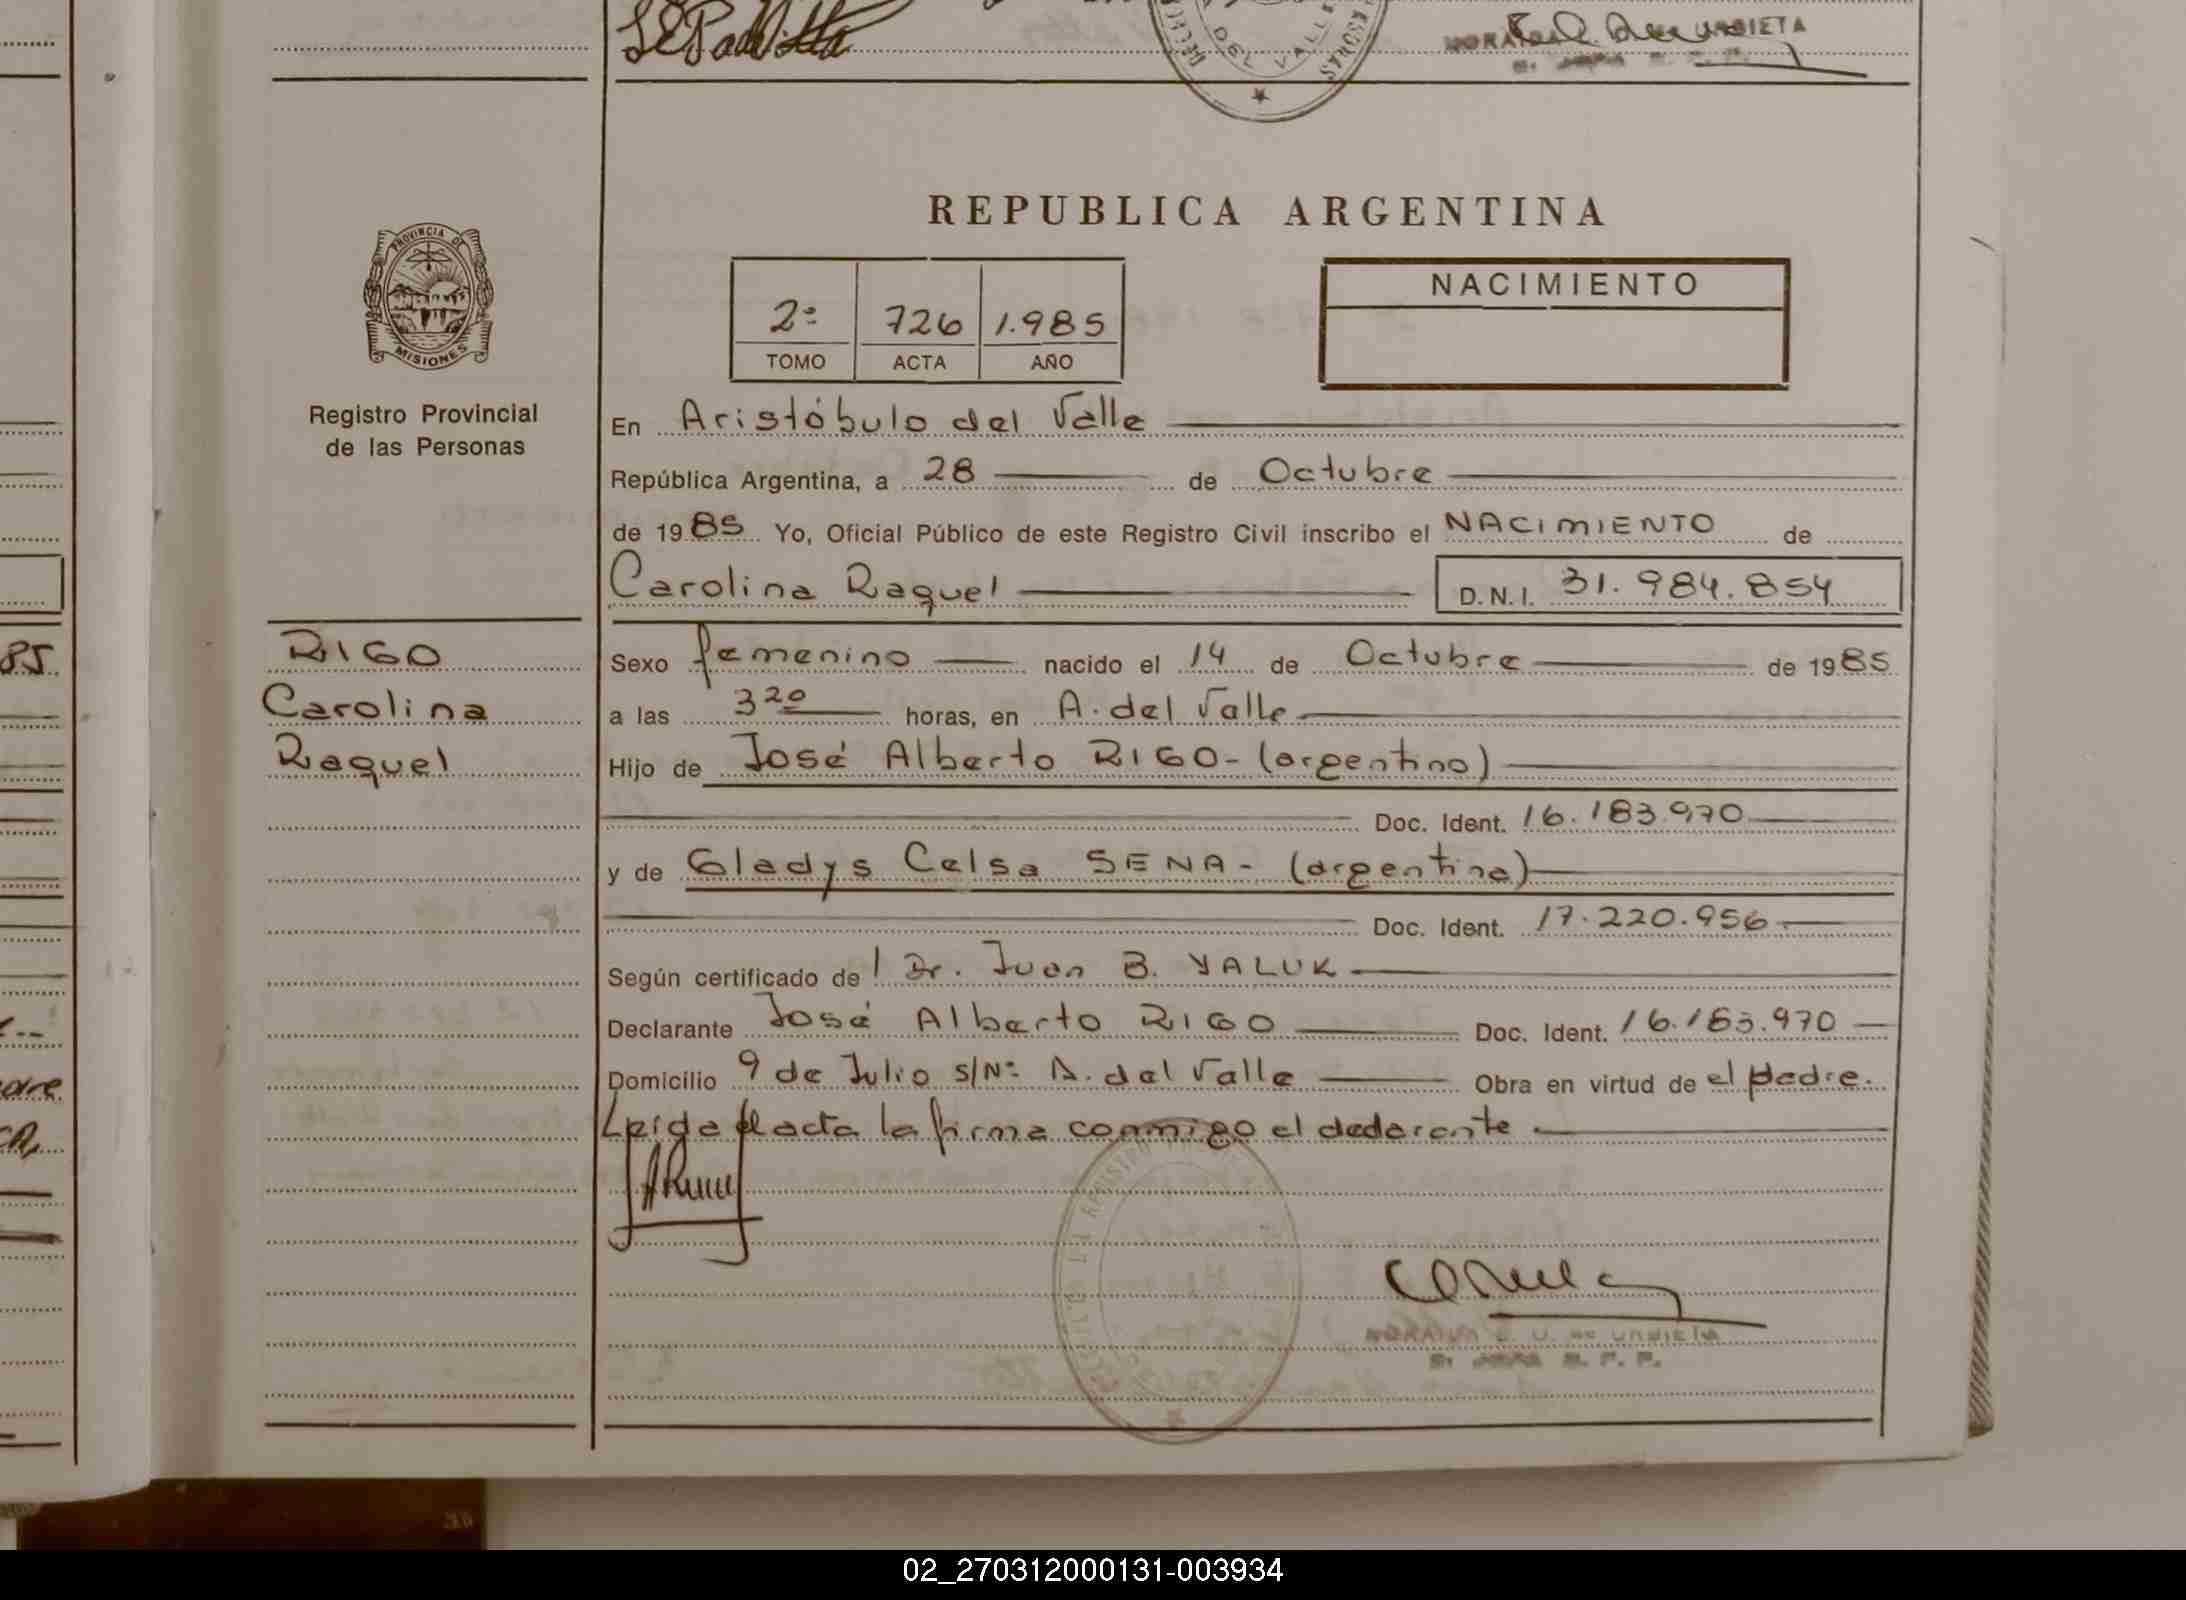 DEL VALLE
URBIETA
REPUBLICA ARGENTINA
PROVINCIA DE
MISIONES
Registro Provincial
de las Personas
2º 726 1.985
TOMO ACTA AÑO
NACIMIENTO
En Aristóbulo del Valle
República Argentina, a 28 de Octubre
de 1985 Yo, Oficial Público de este Registro Civil inscribo el NACIMIENTO de
Carolina Raquel D.N.I. 31.984.854
RIGO
Carolina
Raquel
Sexo femenino nacido el 14 de Octubre de 1985
a las 3 20 horas, en A. del Valle
Hijo de José Alberto RIGO - (argentino)
Doc. Ident. 16.183.970
y de Gladys Celsa SENA - (argentina)
Doc. Ident. 17.220.956
Según certificado de Dr. Juan B. YALUK
Declarante José Alberto RIGO Doc. Ident. 16.183.970
Domicilio 9 de Julio s/Nº A. del Valle Obra en virtud de el padre.
Leida el acta la firma conmigo el declarante
02_270312000131-003934